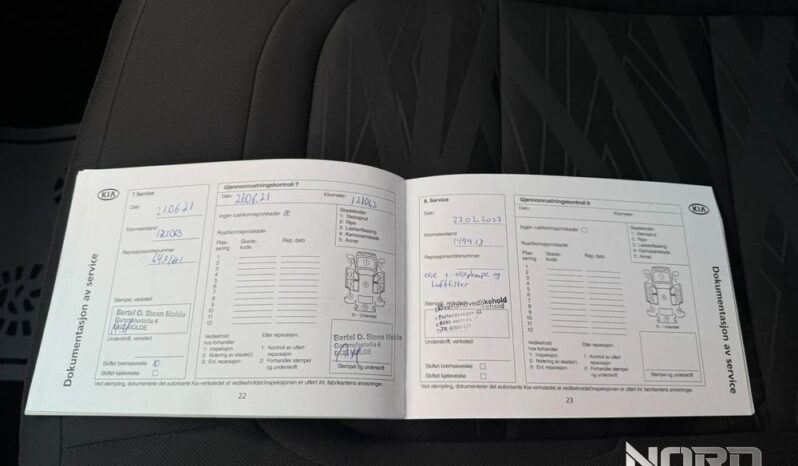 KIA
7. Service
Dato
21.06.21
Kilometerstand
121063
Reparasjonsordrenummer
Stempel, verksted:
Bertel O. Steen Molde
MOLDE
Underskrift, verksted:
Skiftet bremsevæske
Skiftet kjølevæske
Gjennomrustningskontroll 7
Dato: 21.06.21 Kilometer: 121063
Ingen rust/korrosjon/skader:
Skadekoder:
1: Steinsprut
2: Ripe
3: Lakkavflassing
4: Karosseriskade
5: Annet
Rust/korrosjon/skader:
Plassering Skadekode Rep. dato
1
2
3
4
5
6
7
8
9
10
11
12
U - Underdel
Vedlikehold hos forhandler
1: Inspeksjon
2: Notering av skade(r)
3: Evt. reparasjon
Etter reparasjon:
1: Kontroll av utført reparasjon
2: Forhandler stempel og underskrift
Bertel O. Steen Molde
MOLDE
Stempel og underskrift
Ved stempling, dokumenterer det autoriserte Kia-verkstedet at vedlikeholdet/inspeksjonen er utført iht. fabrikantens anvisninger.
22
Dokumentasjon av service
8. Service
Dato
23.02.2023
Kilometerstand
Reparasjonsordrenummer
olje + oljepumpe og
Luftfilter
Stempel, verksted:
Underskrift, verksted:
Skiftet bremsevæske
Skiftet kjølevæske
Gjennomrustningskontroll 8
Dato: Kilometer:
Ingen rust/korrosjon/skader:
Skadekoder:
1: Steinsprut
2: Ripe
3: Lakkavflassing
4: Karosseriskade
5: Annet
Rust/korrosjon/skader:
Plassering Skadekode Rep. dato
1
2
3
4
5
6
7
8
9
10
11
12
U - Underdel
Vedlikehold hos forhandler
1: Inspeksjon
2: Notering av skade(r)
3: Evt. reparasjon
Etter reparasjon:
1: Kontroll av utført reparasjon
2: Forhandler stempel og underskrift
Stempel og underskrift
Ved stempling, dokumenterer det autoriserte Kia-verkstedet at vedlikeholdet/inspeksjonen er utført iht. fabrikantens anvisninger.
23
KIA
Dokumentasjon av service
NORD